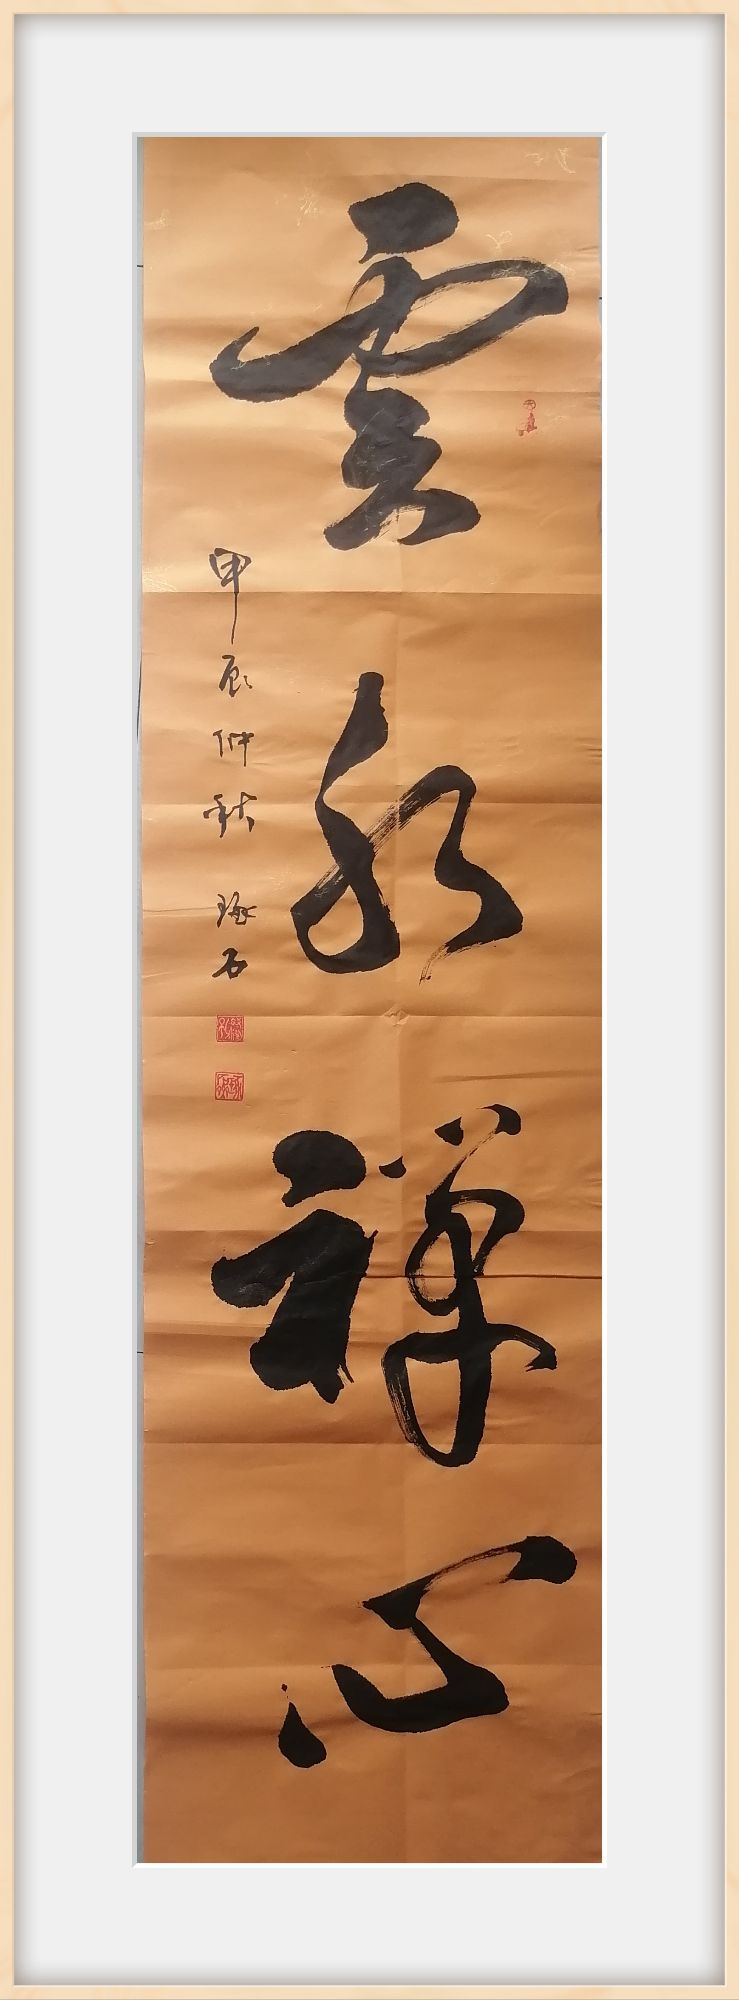 雲水禪心
甲辰仲秋 琢石